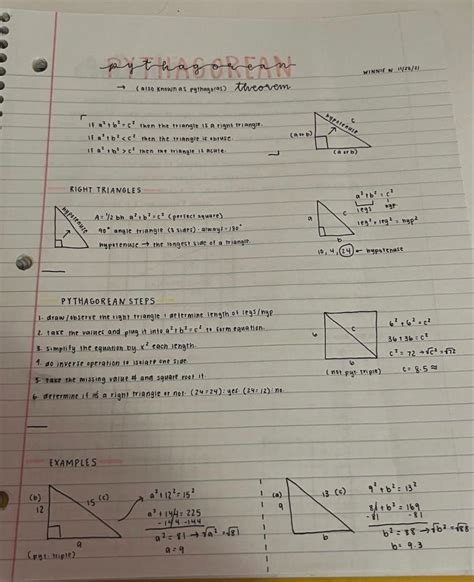 PYTHAGOREAN
pythagorean
WINNIE N 11/20/21
→ (also known as pythagoras) theorem
if a² + b² = c² then the triangle is a right triangle.
if a² + b² < c² then the triangle is obtuse.
if a² + b² > c² then the triangle is acute.
hypotenuse
c
(a or b)
(a or b)
RIGHT TRIANGLES
hypotenuse
A = 1/2 bh a² + b² = c² (perfect square)
90° angle triangle (3 sides) always = 180°
hypotenuse → the longest side of a triangle.
a
c
b
a² + b² = c²
legs hyp
leg² + leg² = hyp²
10, 4, 24 ← hypotenuse
PYTHAGOREAN STEPS
1. draw/observe the right triangle & determine length of legs/hyp
2. take the values and plug it into a² + b² = c² to form equation.
3. simplify the equation by x² each length.
4. do inverse operation to isolate one side
5. take the missing value # and square root it.
6. determine if its a right triangle or not. (24=24): yes (24=12): no.
6
c
6
(not pyt. triple)
6² + 6² = c²
36 + 36 = c²
c² = 72 → √c² = √72
c = 8.5 ≈
EXAMPLES
(b)
12
15 (c)
a
(pyt. triple)
a² + 12² = 15²
a² + 144 = 225
-144 -144
a² = 81 → √a² = √81
a = 9
(a)
9
13 (c)
b
9² + b² = 13²
81 + b² = 169
-81 -81
b² = 88 → √b² = √88
b = 9.3